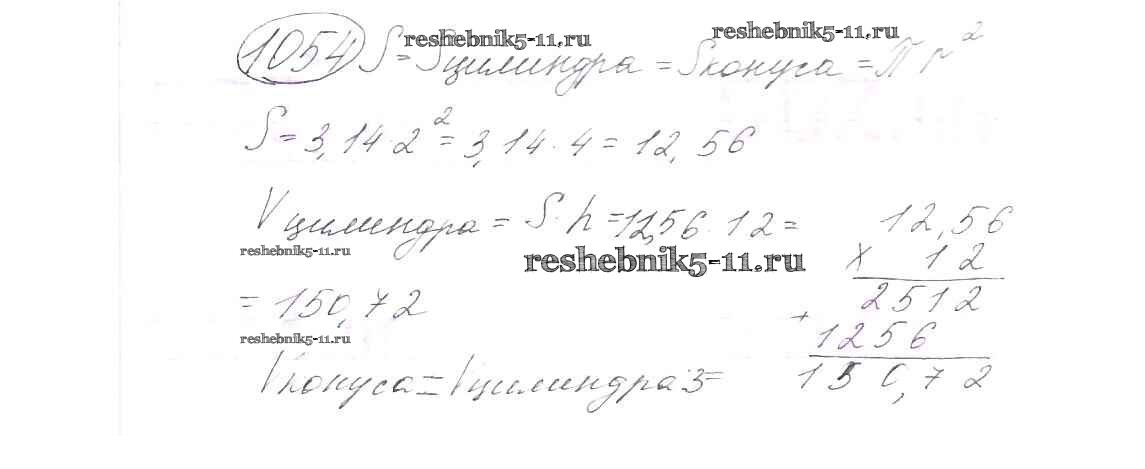 1054 S = Sцилиндра = Sконуса = πr²
reshebnik5-11.ru
reshebnik5-11.ru
S = 3,14·2² = 3,14·4 = 12,56
Vцилиндра = S·h = 12,56·12 =
reshebnik5-11.ru
= 150,72
reshebnik5-11.ru
reshebnik5-11.ru
Vконуса = Vцилиндра:3=
12,56
× 12
2512
+ 1256
150,72